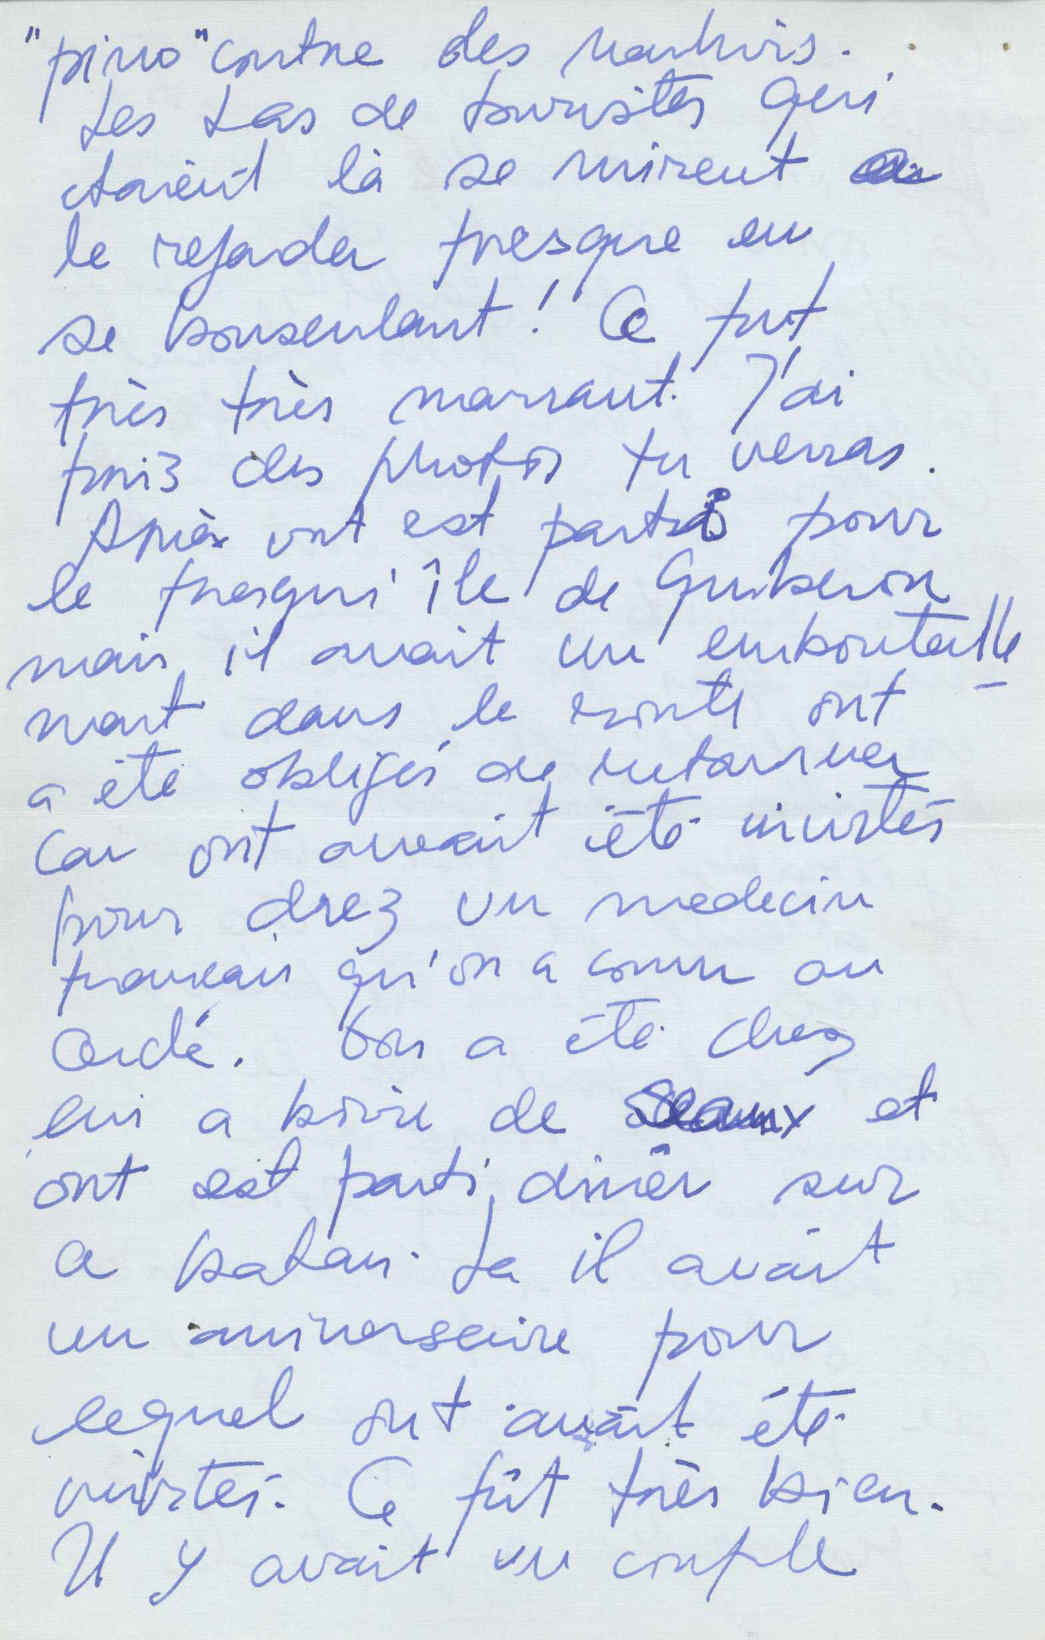 "pino" contre des menhirs.
Les tas de touristes qui
etaient là se mirent a
le regarder presque en
se bousculant! Ce fut
très très marrant. J'ai
pris des photos tu verras.
Après ont est partis pour
le presqu'île de Quiberon
mais il avait un emboutaille
-ment dans le route ont
a été obligés de retourner
car ont avait été invités
pour chez un medecin
français qu'on a connu au
. Bon a été chez
lui a boire de seaux et
ont est parti dinêr sur
a bateau. La il avait
un aniversaire pour
lequel ont avait été
invités. Ce fût très bien.
Il y avait un couple